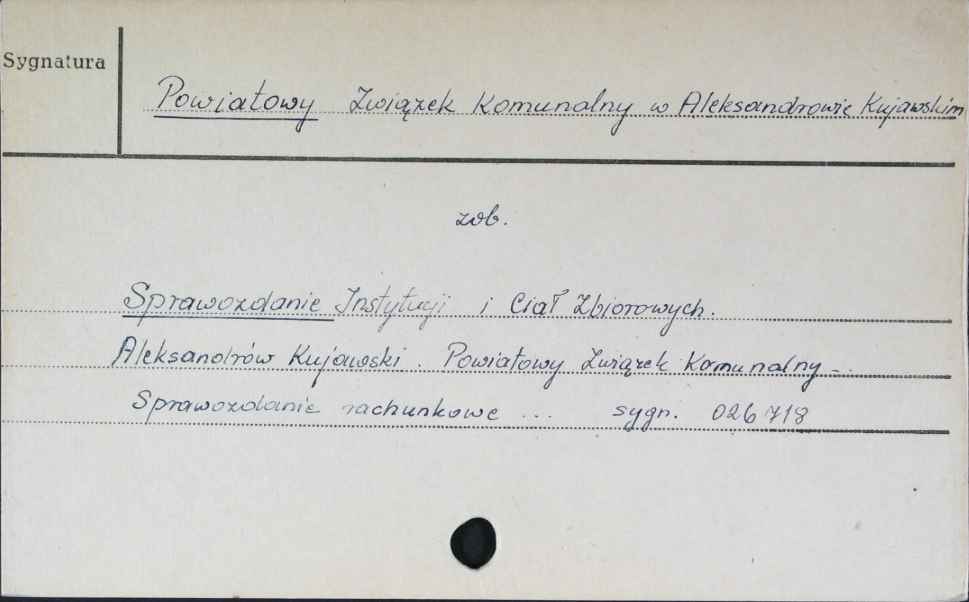 Sygnatura
Powiatowy Związek Komunalny w Aleksandrowie Kujawskim
zob.
Sprawozdanie Instytucji i Ciał Zbiorowych.
Aleksandrów Kujawski. Powiatowy Związek Komunalny -
Sprawozdanie rachunkowe ... sygn. 026718